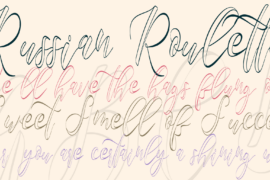 Russian Roulett
e ll have the bags flung o
Sweet Smell of Succe
you are certainly a shining